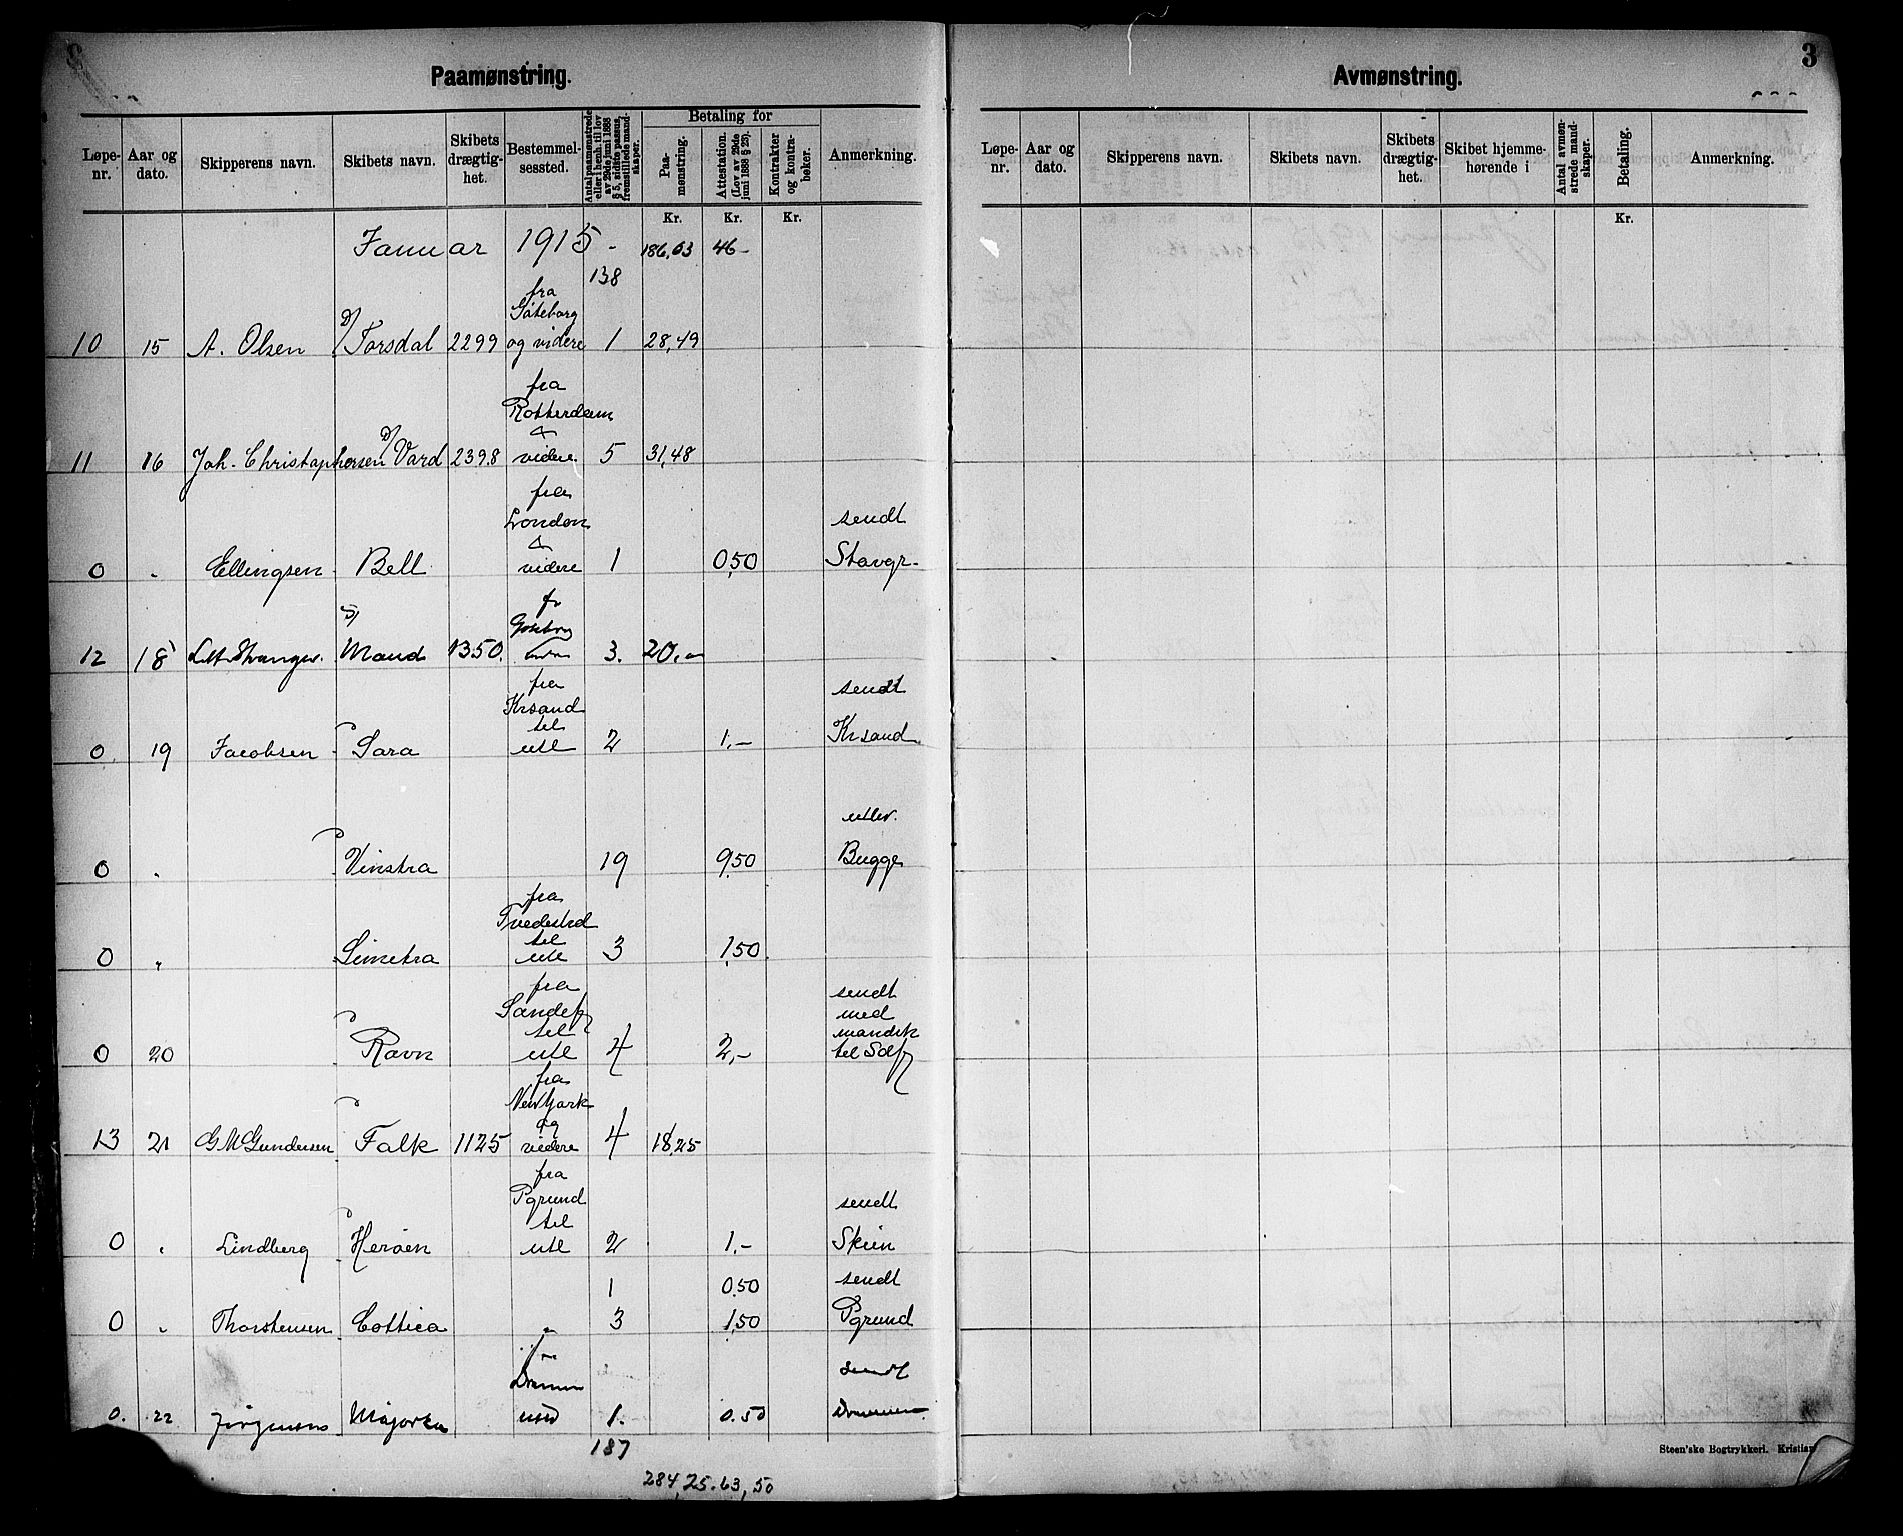 3
Paamønstring.
Løpe-nr. Aar og dato. Skipperens navn. Skibets navn. Skibets drægtig-het. Bestemmel-sessted. Antal paamønstrede eller i henh. til lov av 29de juni 1888 § 5, sidste passus, fremstillede mand-skaper. Betaling for Paa-mønstring. Attestation. (Lov av 29de juni 1888 § 23). Kontrakter og kontra-bøker. Anmerkning.
Kr. Kr. Kr.
Januar 1915 - 138 186,63 46-
fra
Göteborg
10 15 A. Olsen D/ Torsdal 2299 og videre 1 28,49
fra
Rotterdam
&
11 16 Joh. Christophersen D/ Vard 2398 videre 5 31,48
fra
London sendt
&
0 " Ellingsen Bell videre 1 0,50 Stavgr.
fr
12 18 D/ Maud 1350. 3. 20,-
fra
Krsand sendt
til
0 19 Jacobsen Sara utl 2 1,- Krsand
utlev.
0 " Vinstra 19 9,50 Bugge
fra
Tvedestrd
til
0 " Simetra utl 3 1,50
fra sendt
Sandefj med
til mandsk
0 20 Ravn utl 4 2,- til Solfj
fra
New York
og
13 21 G M Gundersen Falk 1125 videre 4 18,25
fra
Pgrund sendt
til
0 " Lindberg Heröen utl 2 1,- Skien
1 0,50 sendt
0 " Thorstensen Cottica " 3 1,50 Pgrund
fra
Drammen sendt
0. 22 Jörgensen Majorka utld 1. 0.50 Drammen
187
284,25. 63,50
Avmønstring.
3
Løpe-nr. Aar og dato. Skipperens navn. Skibets navn. Skibets drægtig-het. Skibet hjemme-hørende i Antal avmøn-strede mand-skaper. Betaling. Anmerkning.
Kr.
Steen'ske Bogtrykkeri. Kristian